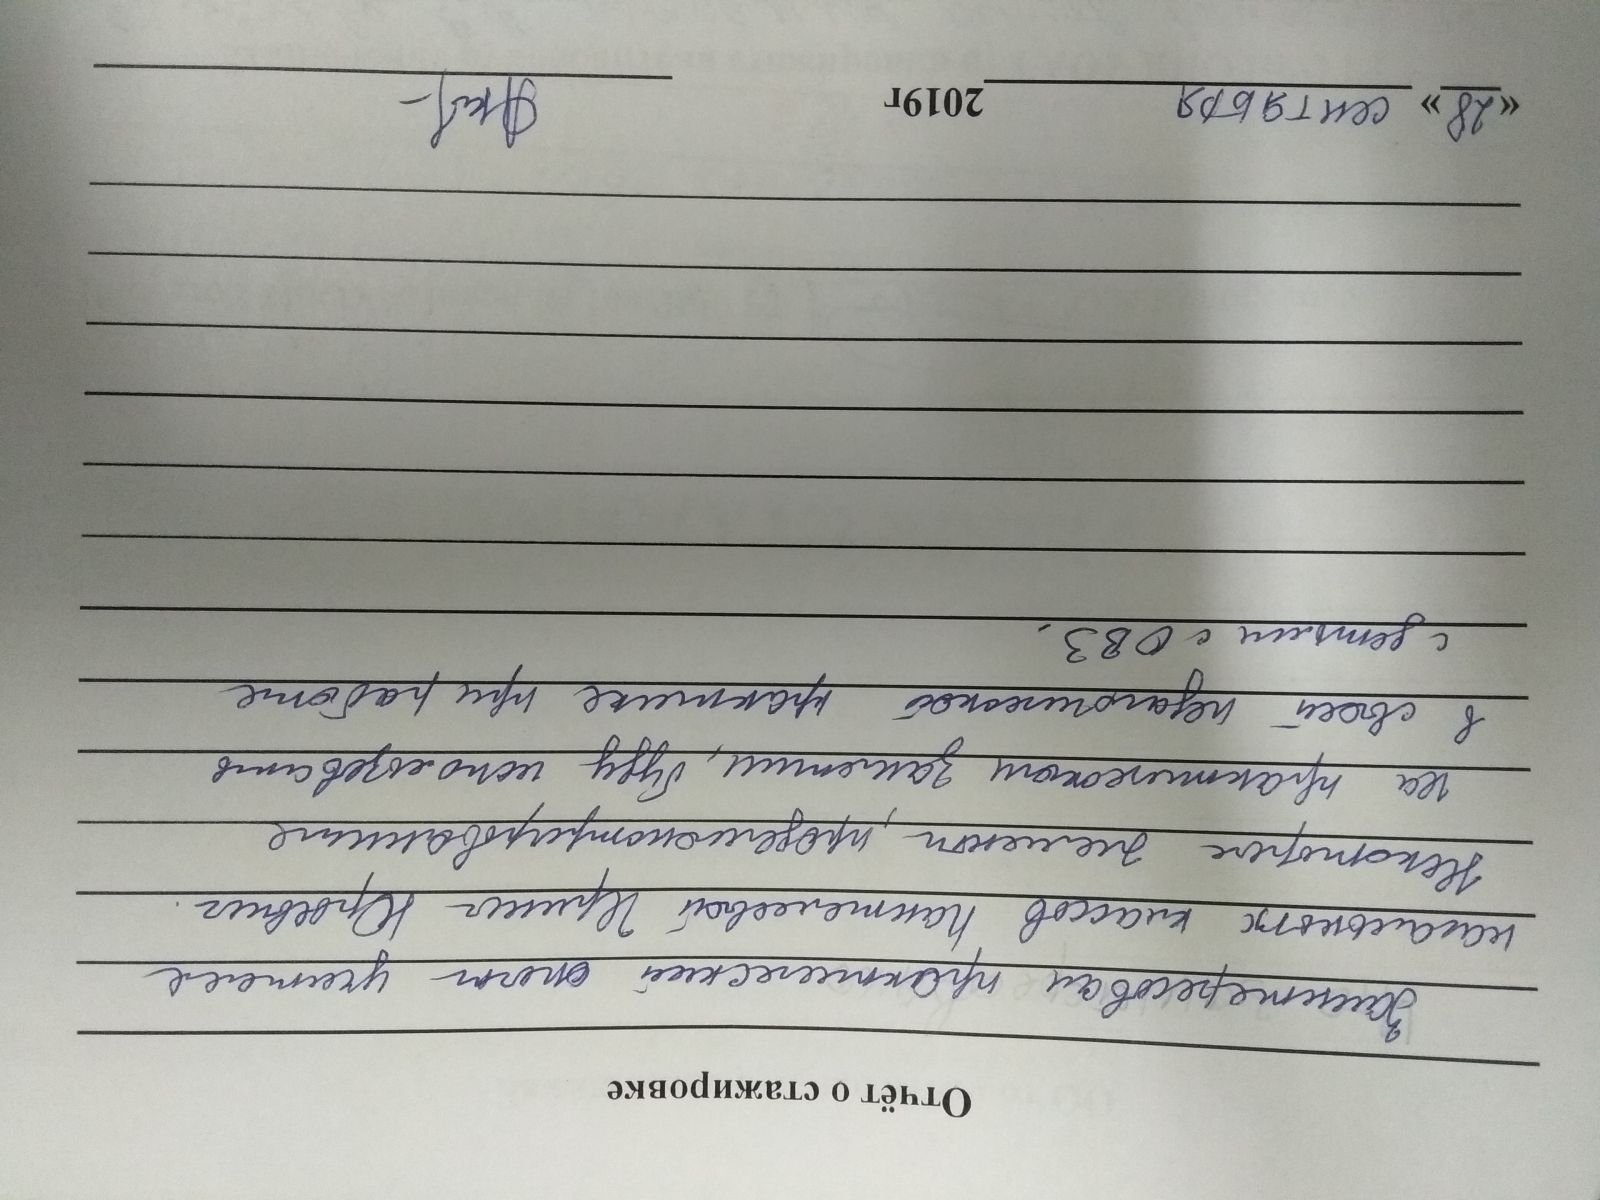 Отчёт о стажировке
Заинтересовал практический опыт учителя
начальных классов Пантелеевой Ирины Юрьевны.
Некоторые элементы, продемонстрированные
на практическом занятии, буду использовать
в своей педагогической практике при работе
с детьми с ОВЗ.
«28» сентября 2019г